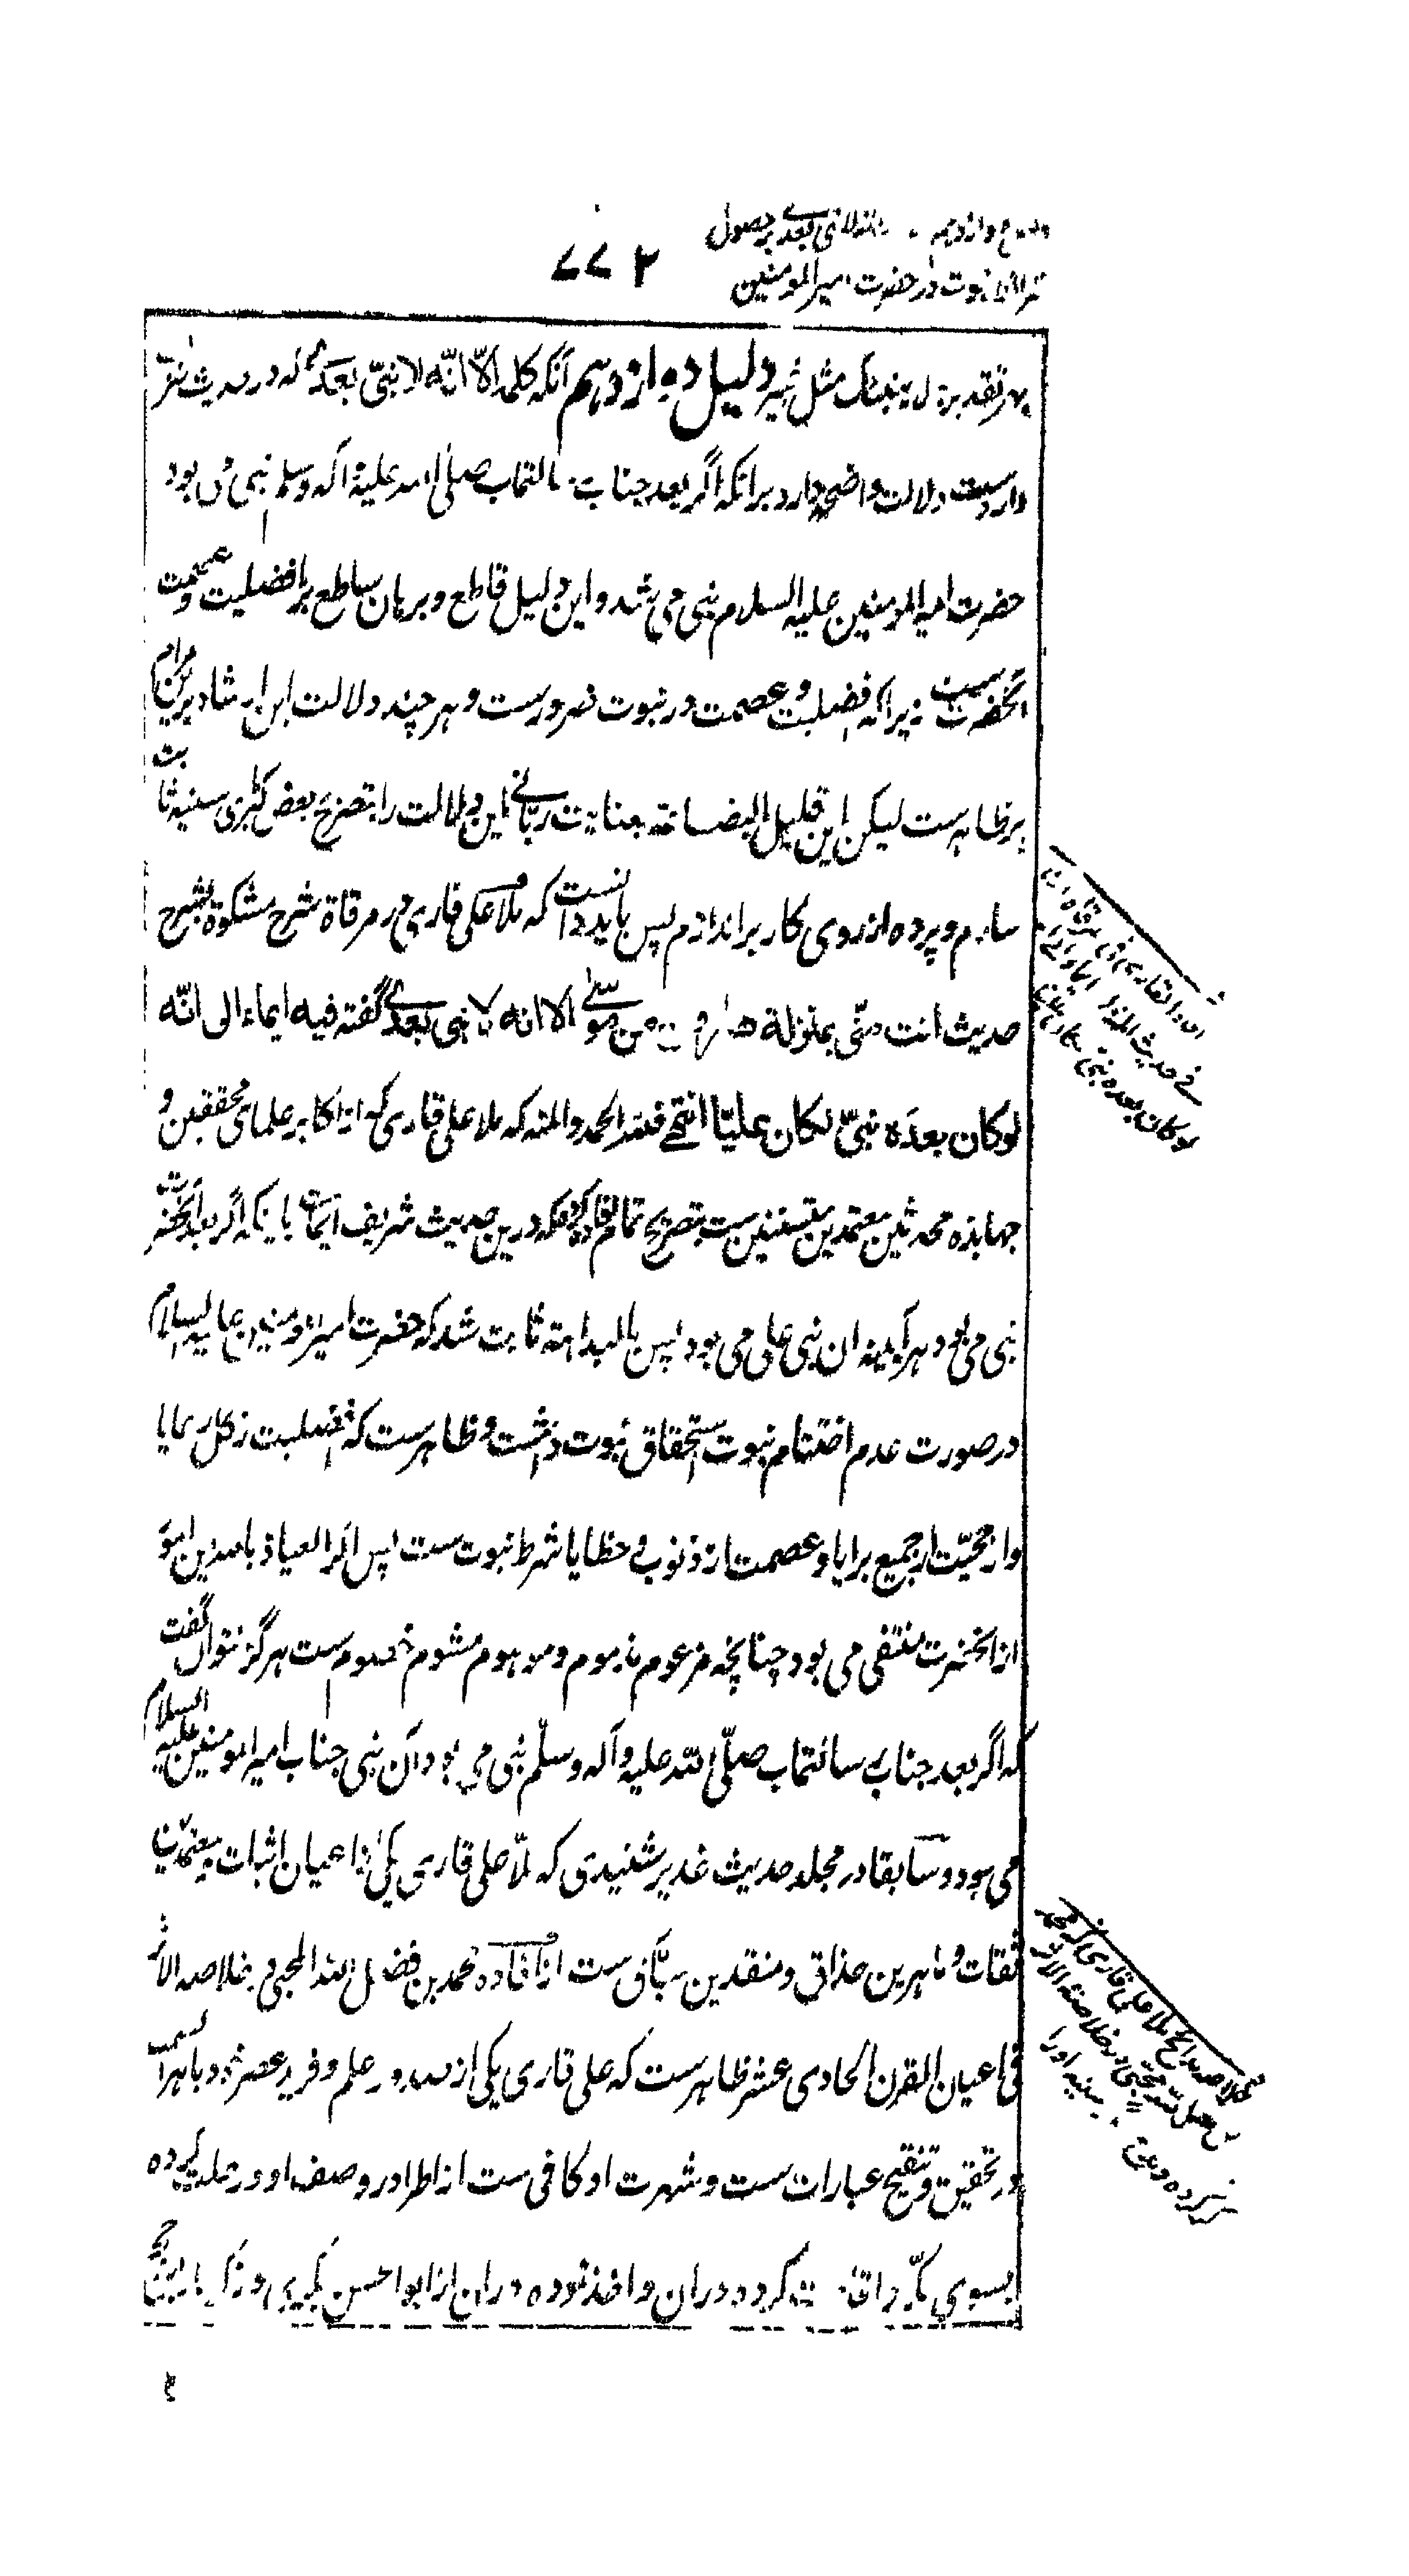 لانبی بعدی بر حصول
نبوت در حضرت امیرالمومنین
۷۷۲
دلیل دوازدهم آنکه کلمه الّا انّه لا نبیّ بعدی که در حدیث
واردست دلالت واضحه دارد برانکه اگر بعد جناب رسالتماب صلی الله علیه و اله وسلم نبی می بود
حضرت امیرالمومنین علیه السلام نبی می شد و این دلیل قاطع و برهان ساطع بر افضلیت و عصمت
آنحضرت ست زیراکه افضلیت و عصمت در نبوت ضرورست و هر چند دلالت این ارشاد برین مرام
پر ظاهرست لیکن این قلیل البضاعة بعنایت ربانی این دلالت را بتصریح بعض کبرای سنیه ثابت
سازم و پرده از روی کار براندازم پس باید دانست که ملا علی قاری در مرقاة شرح مشکوة بشرح
حدیث انت منّی بمنزلة هارون من موسی الا انه لا نبی بعدی گفته فیه ایماء الی انّه
لو کان بعدَه نبیّ لکان علیّا انتهی فلله الحمد والمنه که ملا علی قاری که از اکابر علمای محققین و
جهابذه محدثین معتمدین مستندین ست بتصریح تمام افاده کرده که درین حدیث شریف ایماست باینکه اگر بعد آنحضرت
نبی می بود هر آیینه ان نبی علی می بود پس بالبداهة ثابت شد که حضرت امیرالمومنین علیه السلام
در صورت عدم اختتام نبوت استحقاق نبوت داشت و ظاهرست که افضلیت از کل رعایا
و ارجحیّت از جمیع برایا و عصمت از ذنوب و خطایا شرط نبوت ست پس اگر العیاذ بالله این امور
از آنحضرت منتفی می بود چنانچه مزعوم مذموم و موهوم مشوم خصوم ست هرگز نتوان گفت
که اگر بعد جناب رسالتماب صلّی الله علیه و آله و سلّم نبی می بود آن نبی جناب امیرالمومنین علیه السلام
می بود و سابقا در مجلد حدیث غدیر شنیدی که ملّا علی قاری یکی از اعیان اثبات معتمدین
ثقات و ماهرین حذاق و منقدین سبّاق ست از افاده محمد بن فضل الله المحبی در خلاصه الاثر
فی اعیان القرن الحادی عشر ظاهرست که علی قاری یکی از صدور علم و فرید عصر خود و باهر السمت
در تحقیق و تنقیح عبارات ست و شهرت او کافی ست از اطرا در وصف او و رحلت کرده
بسوی مکّه و اقامت کرده دران و اخذ نموده دران از ابوالحسن بکری و
فی حدیث المنزلة ایماء الی انه
لو کان بعده نبی لکان علیا